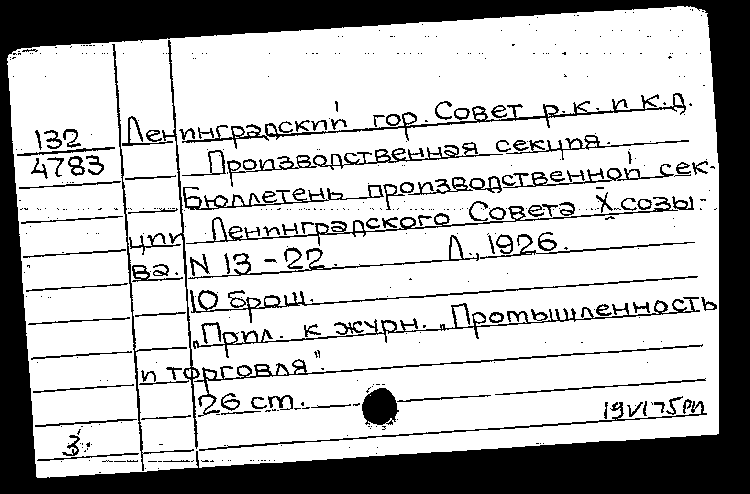 132
4783
Ленинградский гор. Совет р.к. и к.д.
Производственная секция.
Бюллетень производственной сек-
ции Ленинградского Совета X созы-
ва. N 13-22. Л., 1926.
10 брош.
"Прил. к журн. "Промышленность
и торговля".
26 cm.
19 VI 75
3.